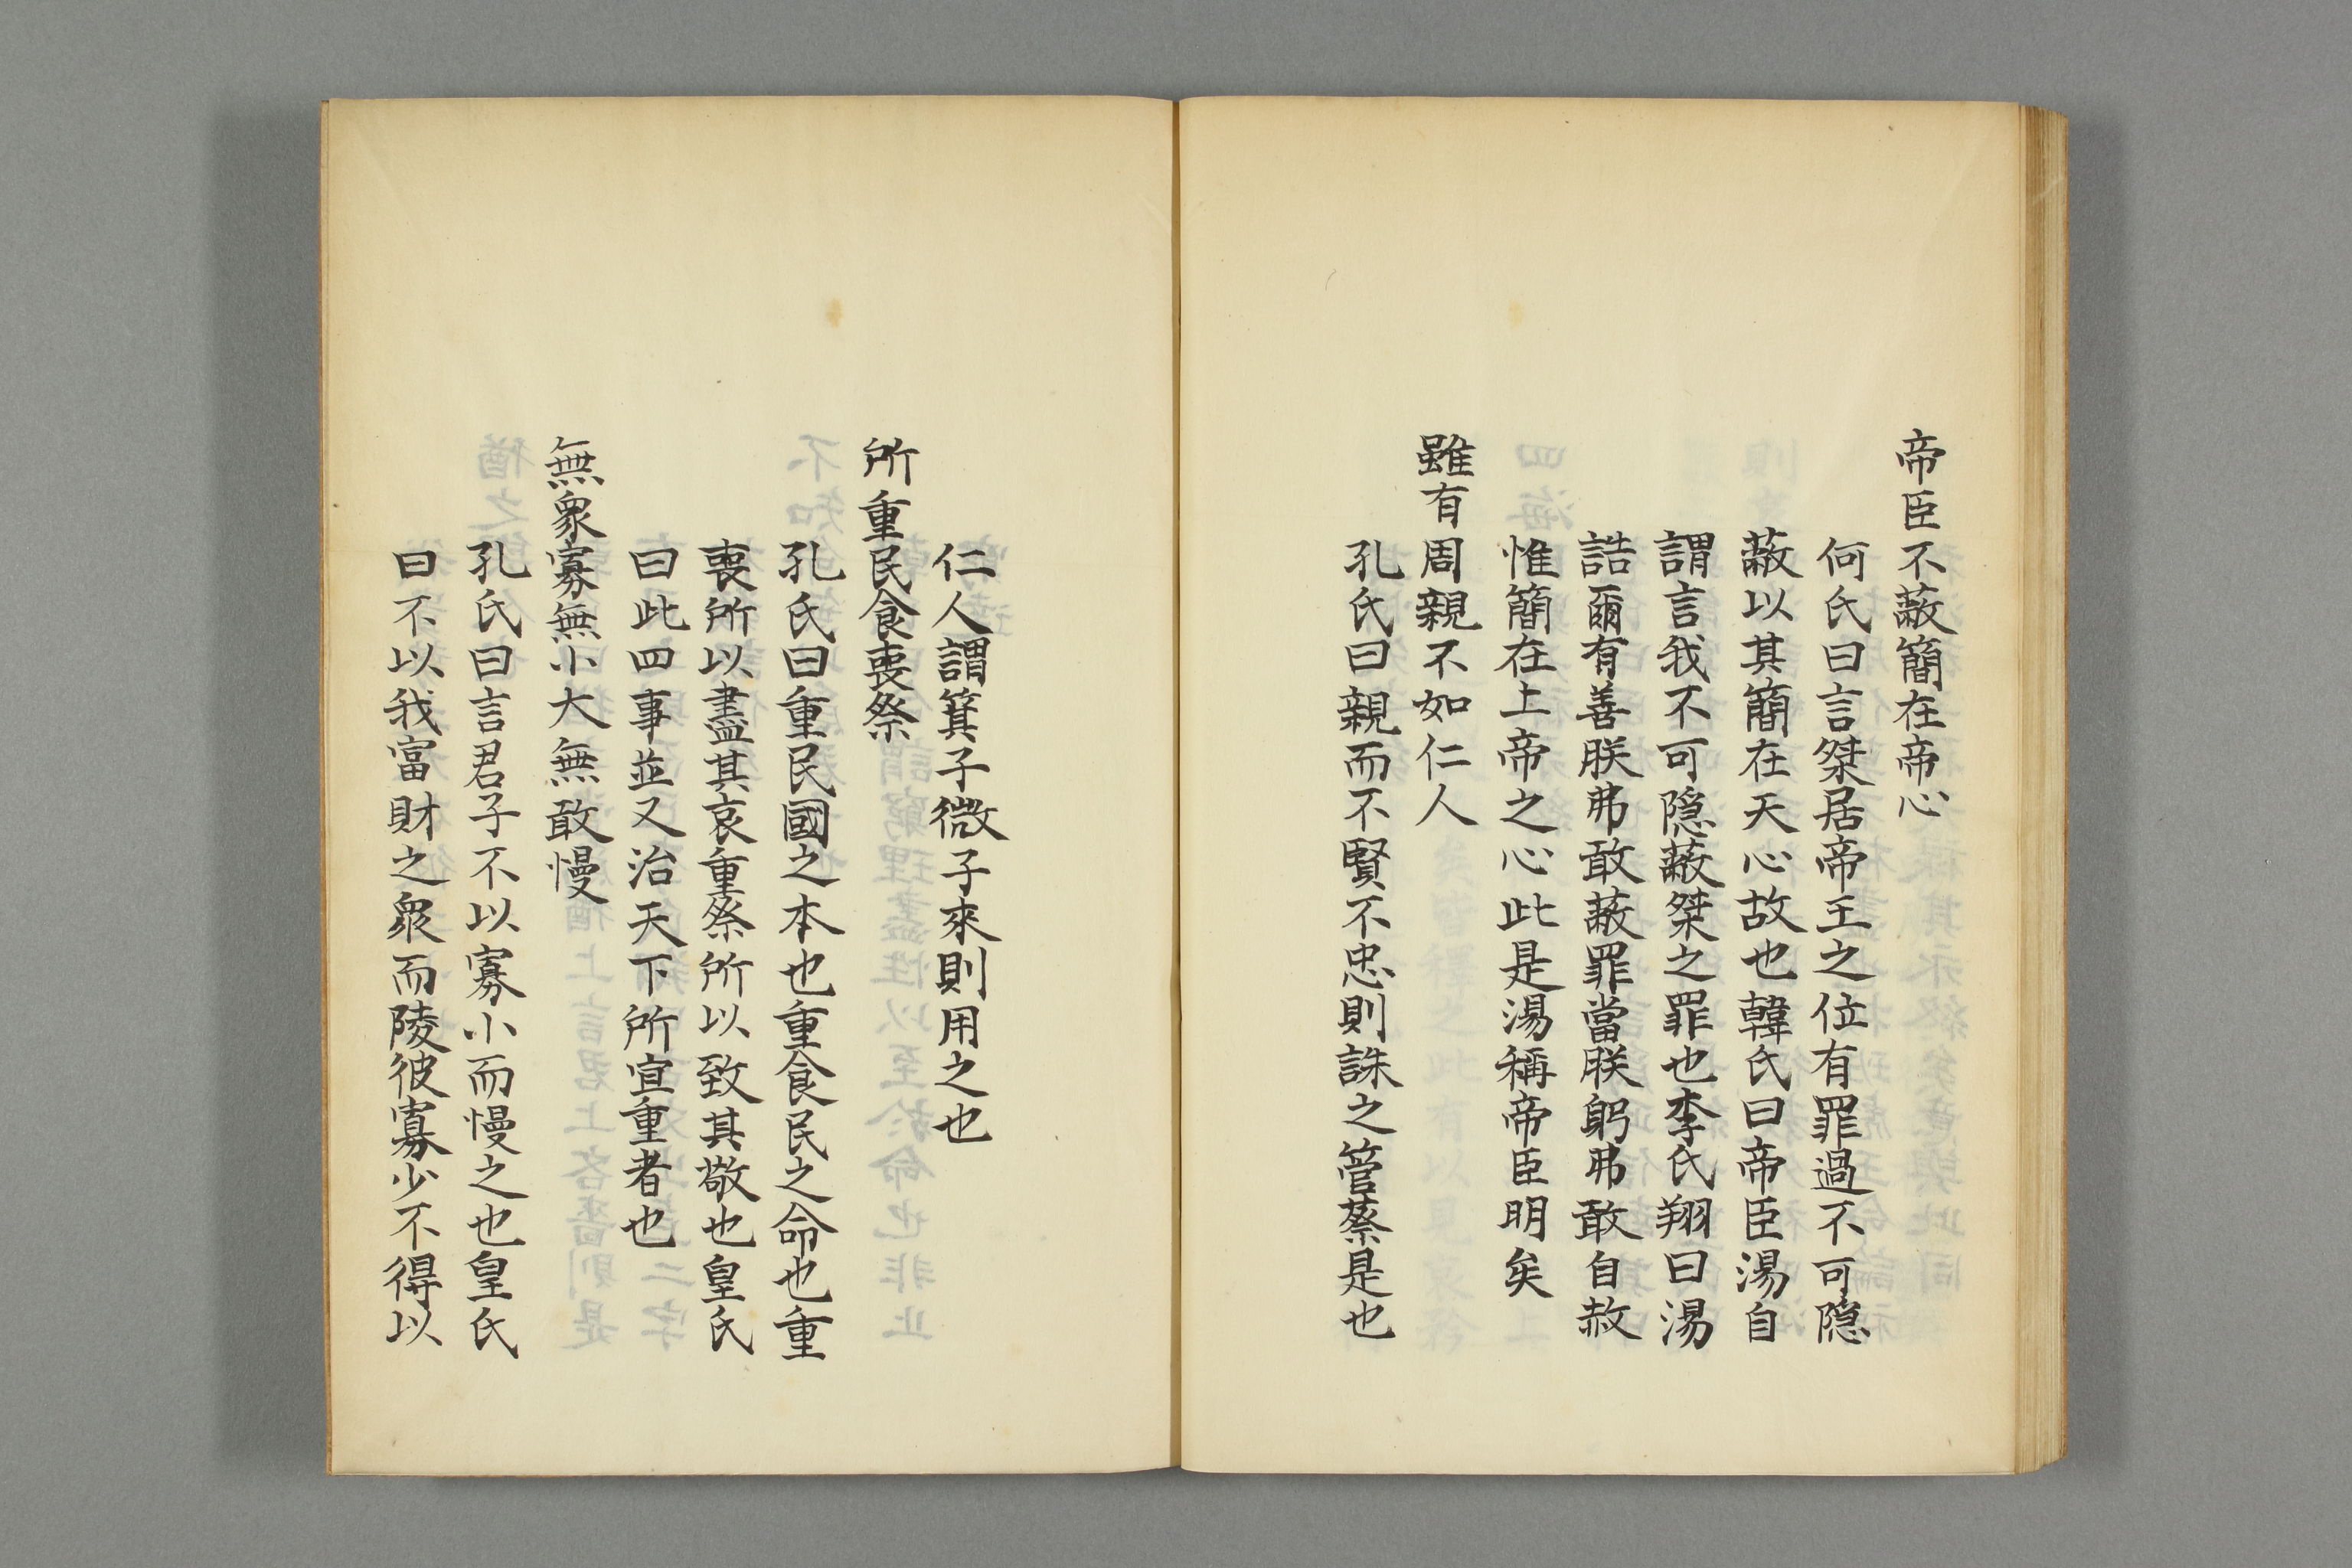 帝臣不蔽簡在帝心
何氏曰言桀居帝王之位有罪過不可隠
蔽以其簡在天心故也韓氏曰帝臣湯自
謂言我不可隠蔽桀之罪也李氏翔曰湯
誥爾有善朕弗敢蔽罪當朕躬弗敢自赦
惟簡在上帝之心此是湯稱帝臣明矣
雖有周親不如仁人
孔氏曰親而不賢不忠則誅之管蔡是也
仁人謂箕子微子來則用之也
所重民食喪祭
孔氏曰重民國之本也重食民之命也重
喪所以盡其哀重祭所以致其敬也皇氏
曰此四事並又治天下所宜重者也
無衆寡無小大無敢慢
孔氏曰言君子不以寡小而慢之也皇氏
曰不以我富財之衆而陵彼寡少不得以